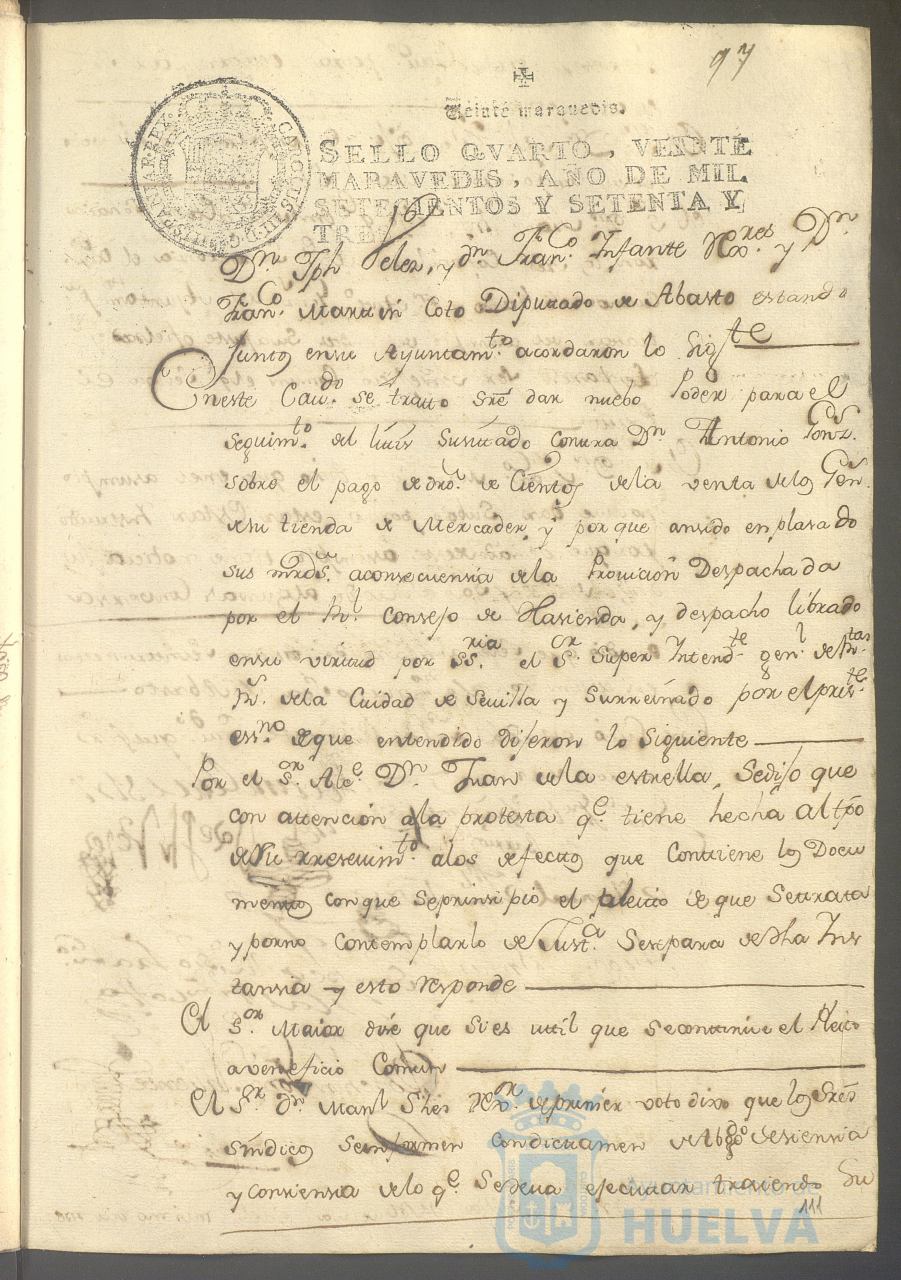 97
Veinte maravedis.
SELLO QVARTO, VEINTE
MARAVEDIS, AÑO DE MIL
SETECIENTOS Y SETENTA Y
TRES
CAROLUS III D G HISPANIAR REX
Dn. Jph Velez, y dn. Franco. Infante Rexres. y Dn
Franco. Martin Coto Diputado de Abasto estando
Juntos en su Ayuntamto. acordaron lo Sigte
En este Cavdo. se tratto sre dar nuebo Poder para el
seguimto. del litis Suscitado contra Dn Antonio Gonz.
sobre el pago de dros. de Cientos de la venta de los Gen.
de su tienda de Mercader, y porque an sido enplasado
sus mrds. a consecuensia de la Provicion Despachada
por el Rl. Consejo de Hasienda, y despacho librado
en su virtud por Ssria. el Sor. Super Intendte. genl. de Rtas
Rs. de la Ciudad de Sevilla y par el prste.
esno. de que entendido dijeron lo Siguiente
Por el Sor. Alce. Dn. Juan de la estrella, Se dijo que
con attención a la protesta qe. tiene hecha al tpo
de su rresevimto. a los efectos que Contiene los Docu
mentos con que se prinsipio el pleito de que Se trata
y por no Contemplarlo de Justa. Se separa de dha Ins
tansia y esto responde
El Sor. Maior dixe que Si es util que Se continúe el Pleito
a veneficio Comun
El Sr. dn. Manl Shes Rexor. de primer voto dixo que los Sres
sindicos Se informen con dictamen de Abogdo de siensia
y consiensia de lo qe. Se deva efecutar trayendo Su
111
Ayuntamiento de
HUELVA